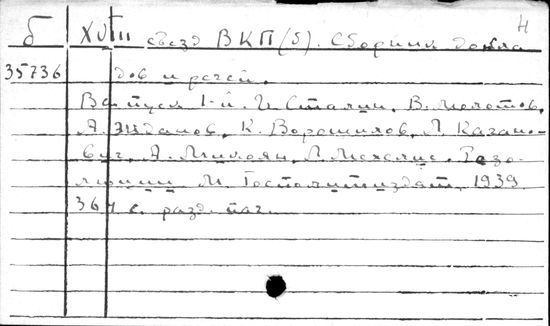 Н
б XVIII съезд ВКП(б). Сборник докла
35736 дов и речей.
Выпуск 1-й. И. Сталин, В. Молотов,
А. Жданов, К. Ворошилов, Л. Кагано-
вич, А. Микоян, Л. Мехлис. Резо-
люции. М. Госполитиздат, 1939
364 с. разд. паг.